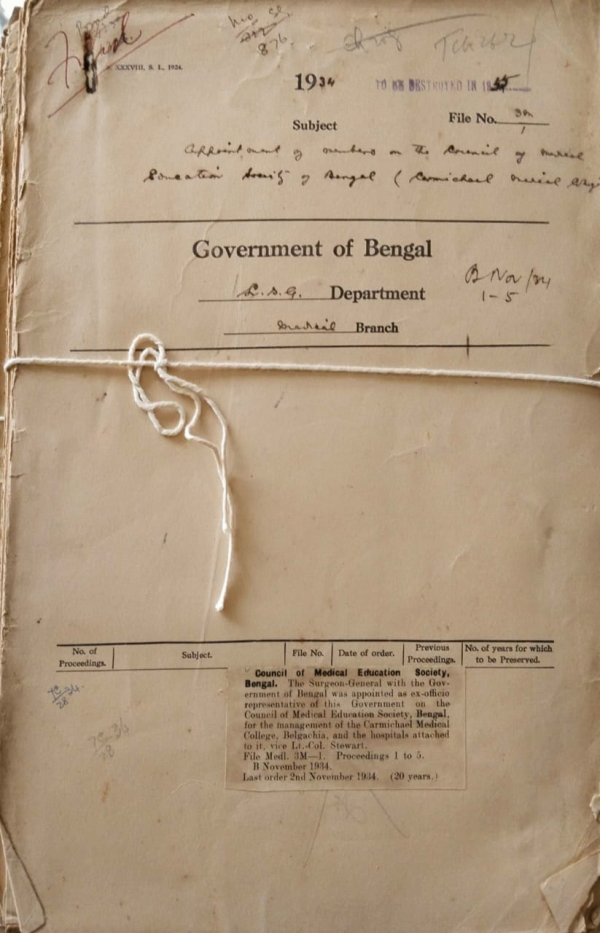 No Cl
876.
XXXVIII, S. L., 1934.
1934 TO BE DESTROYED IN 1955
File No. 3M/1
Subject
Appointment of members on the Council of Medical
Education Society of Bengal (Carmichael Medical
Government of Bengal
L.S.G. Department
B Nov/34
1-5
Medical Branch
No. of Proceedings. Subject. File No. Date of order. Previous Proceedings. No. of years for which to be Preserved.
Council of Medical Education Society,
Bengal. The Surgeon-General with the Gov-
ernment of Bengal was appointed as ex-officio
representative of this Government on the
Council of Medical Education Society, Bengal,
for the management of the Carmichael Medical
College, Belgachia, and the hospitals attached
to it, vice Lt.-Col. Stewart.
File Medl. 3M—1. Proceedings 1 to 5.
B November 1934.
Last order 2nd November 1934. (20 years.)